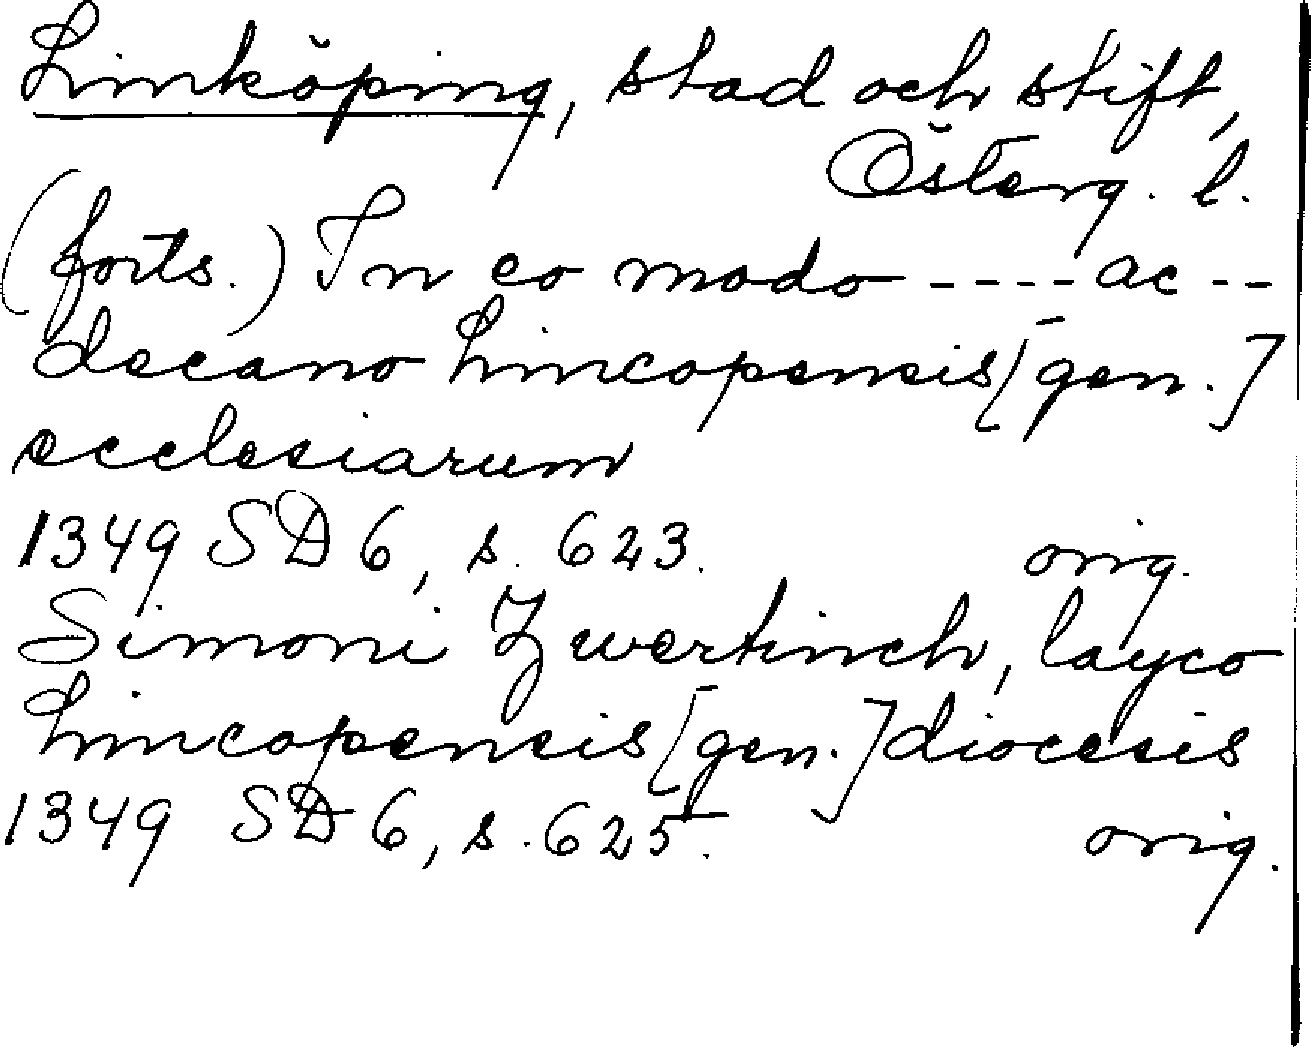 Linköping, stad och stift,
Österg. l.
(forts.) In eo modo ---- ac --
decano Lincopensis [gen.]
ecclesiarum
1349 SD 6, s. 623. orig.
Simoni Zwertinch, layco
Lincopensis [gen.] diocesis
1349 SD 6, s. 625. orig.